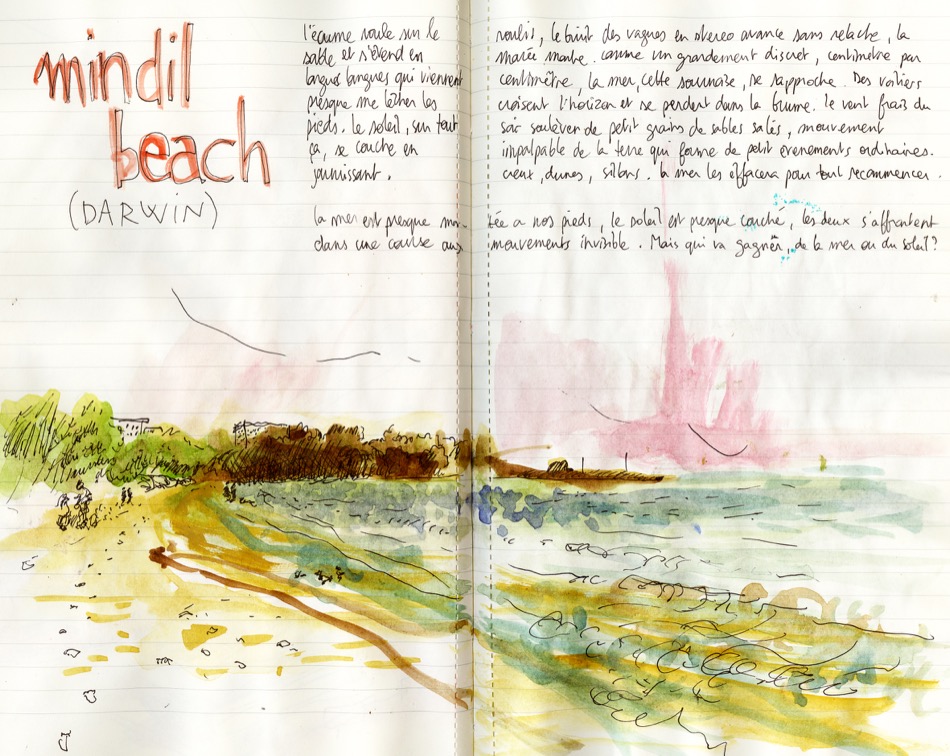 mindil
beach
(DARWIN)
l'écume roule sur le
sable et s'étend en
longues langues qui viennent
presque me lécher les
pieds. le soleil, sur tout
ça, se couche en
jaunissant.
roulis, le bruit des vagues en stereo avance sans relache, la
marée monte. comme un grondement discret, centimètre par
centimètre, la mer, cette sournoise, se rapproche. Des voiliers
croisent l'horizon et se perdent dans la brume. le vent frais du
soir soulèver de petit grains de sables salés, mouvement
impalpable de la terre qui forme de petit evenements ordinaires.
creux, dunes, sillons. la mer les effacera pour tout recommencer.
la mer est presque montée a nos pieds, le soleil est presque couché, les deux s'affrontent
dans une course aux mouvements invisible. Mais qui va gagner, de la mer ou du soleil?